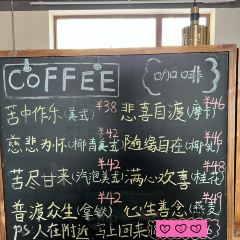 COFFEE 咖啡
¥38 ¥46
苦中作乐(美式) 悲喜自渡(摩卡)
¥42 ¥46
慈悲为怀(椰青美式) 随缘自在(椰乳)
¥42 ¥48
苦尽甘来(汽泡美式) 满心欢喜(桂花)
¥42 ¥49
普渡众生(拿铁) 心生善念(燕麦)
PS人在附近 马上回来